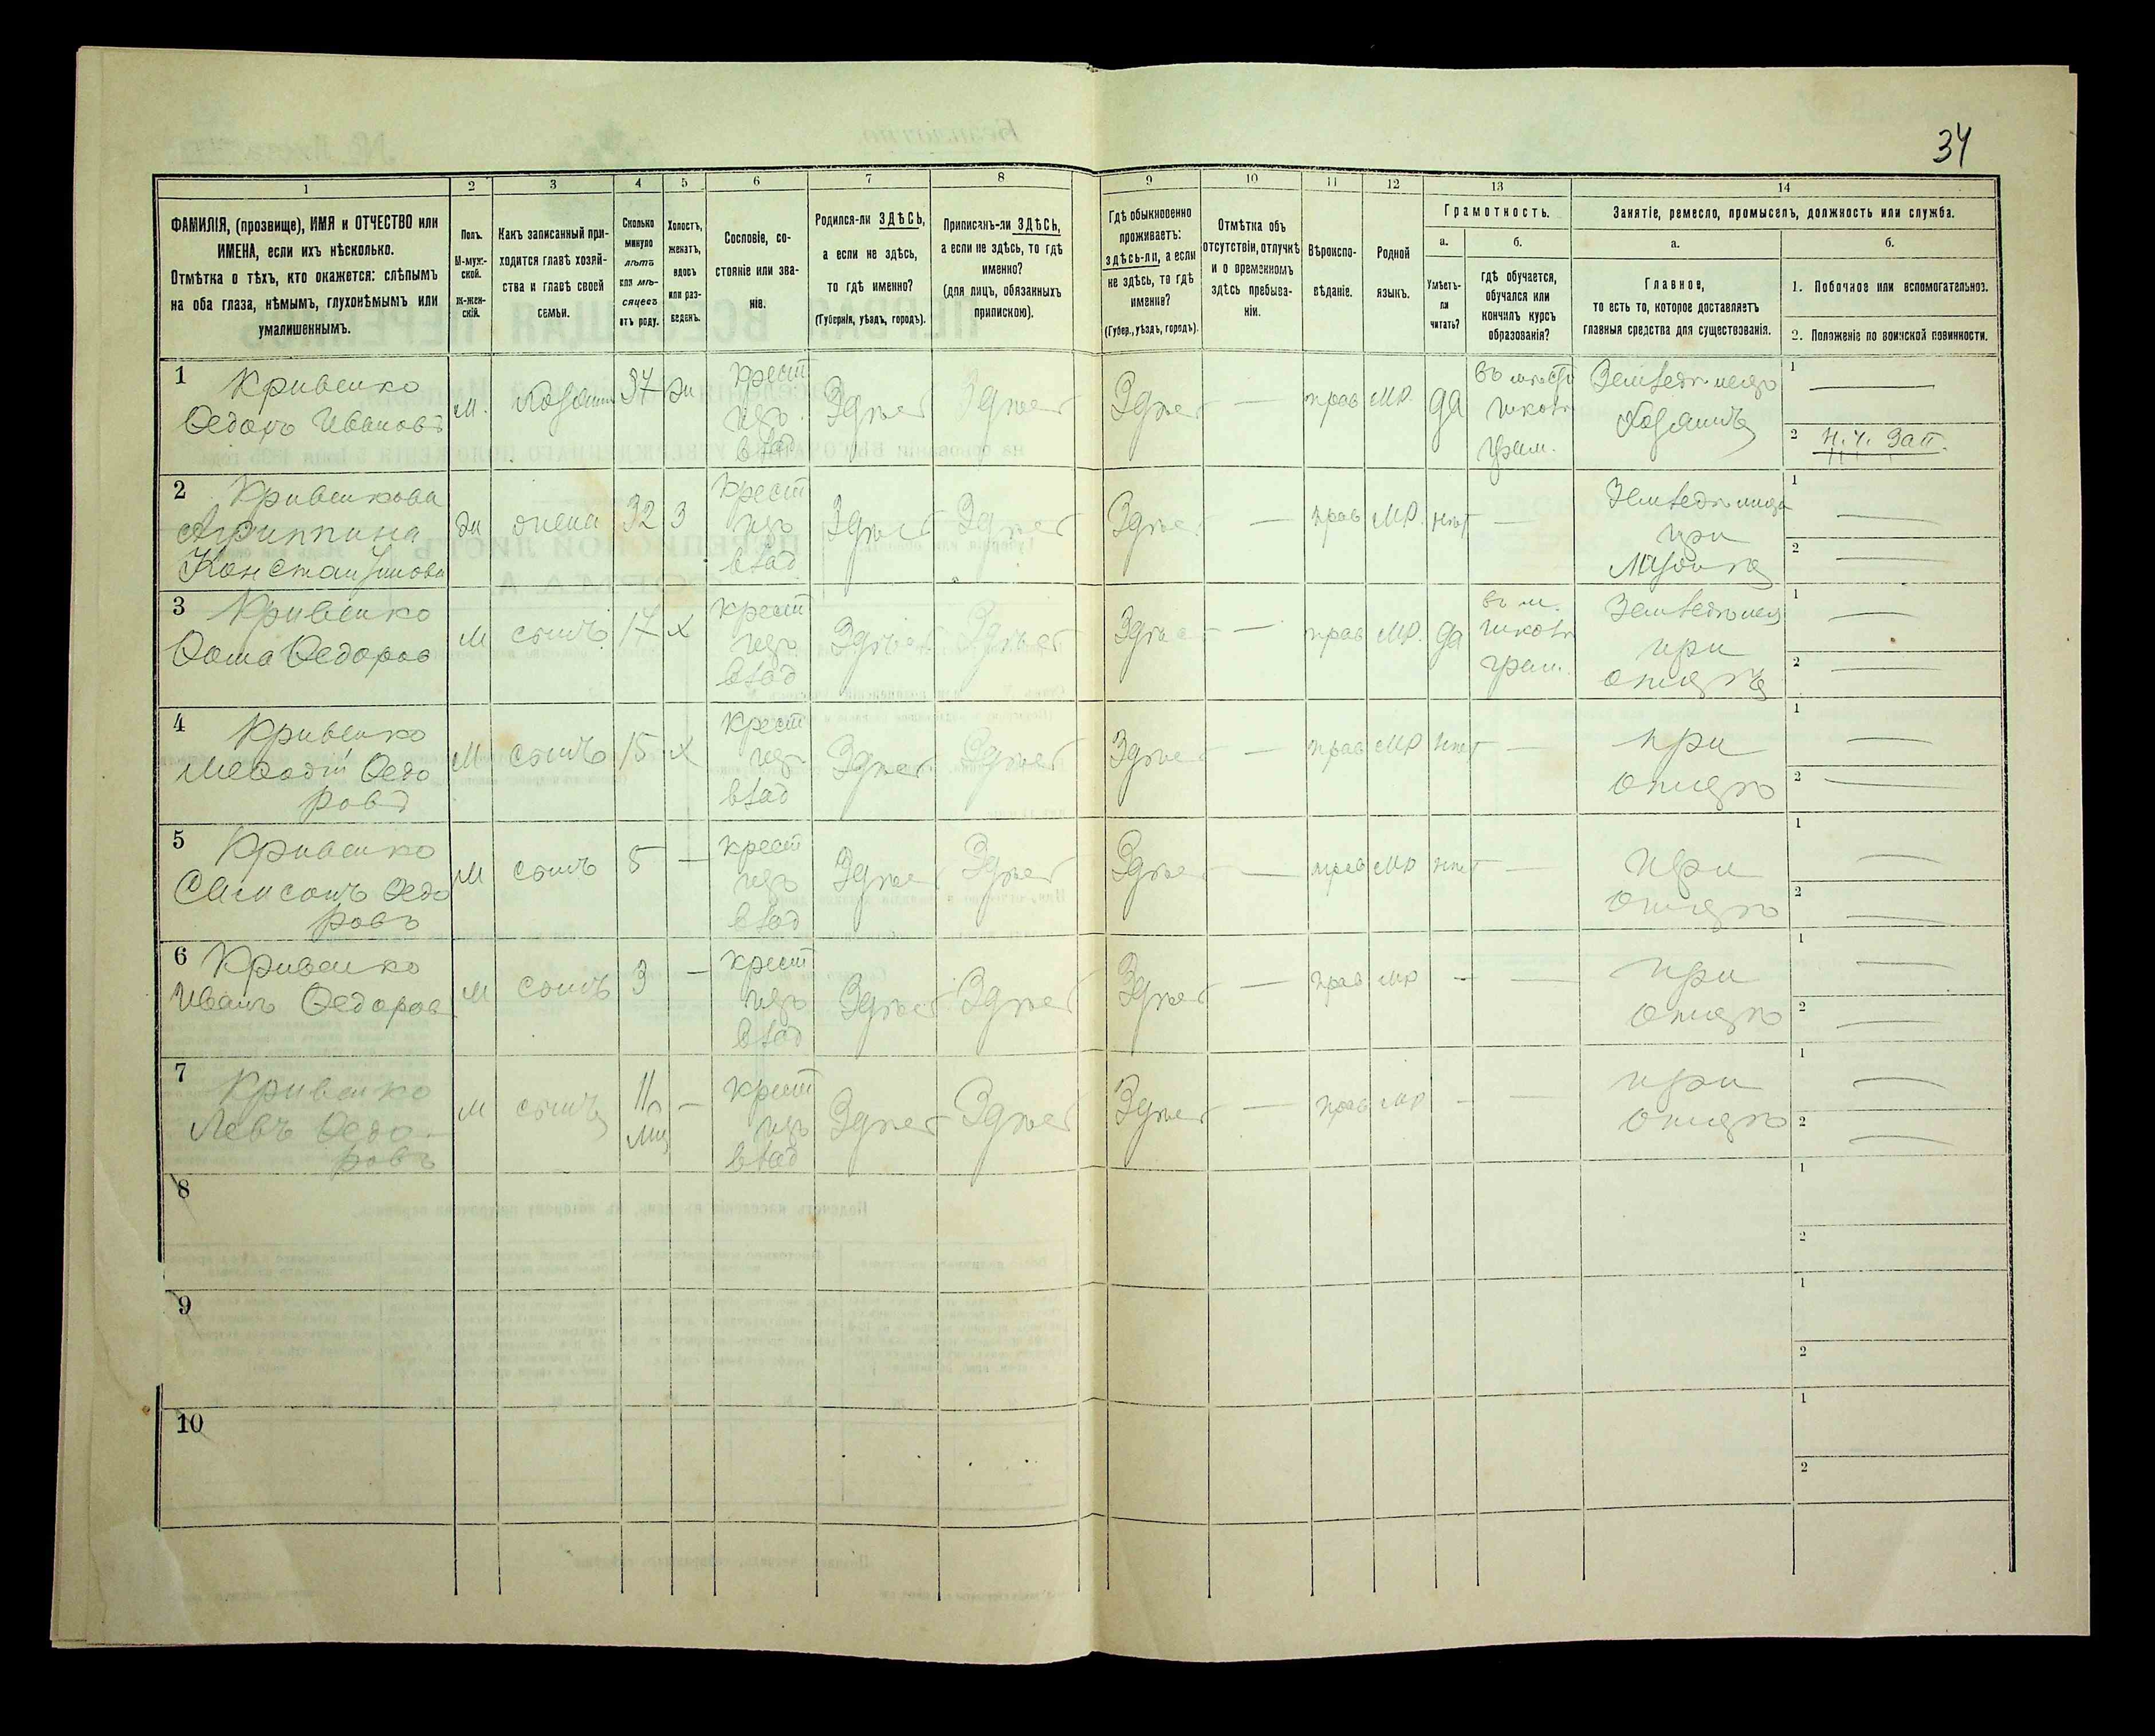 34
1 2 3 4 5 6 7 8 9 10 11 12 13 14
ФАМИЛІЯ, (прозвище), ИМЯ и ОТЧЕСТВО или
ИМЕНА, если ихъ нѣсколько.
Отмѣтка о тѣхъ, кто окажется: слѣпымъ
на оба глаза, нѣмымъ, глухонѣмымъ или
умалишеннымъ.
Полъ.
М-муж-
ской.
ж-жен-
скій.
Какъ записанный при-
ходится главѣ хозяй-
ства и главѣ своей
семьи.
Сколько
минуло
лѣтъ
или мѣ-
сяцевъ
отъ роду.
Холостъ,
женатъ,
вдовъ
или раз-
веденъ.
Сословіе, со-
стояніе или зва-
ніе.
Родился-ли ЗДѢСЬ,
а если не здѣсь,
то гдѣ именно?
(Губернія, уѣздъ, городъ).
Приписанъ-ли ЗДѢСЬ,
а если не здѣсь, то гдѣ
именно?
(для лицъ, обязанныхъ
припискою).
Гдѣ обыкновенно
проживаетъ:
здѣсь-ли, а если
не здѣсь, то гдѣ
именно?
(Губер., уѣздъ, городъ).
Отмѣтка объ
отсутствіи, отлучкѣ
и о временномъ
здѣсь пребыва-
ніи.
Вѣроиспо-
вѣданіе.
Родной
языкъ.
Грамотность.
а.
Умѣетъ-
ли
читать?
б.
гдѣ обучается,
обучался или
кончилъ курсъ
образованія?
Занятіе, ремесло, промыселъ, должность или служба.
а.
Главное,
то есть то, которое доставляетъ
главныя средства для существованія.
б.
1. Побочное или вспомогательное.
2. Положеніе по воинской повинности.
1 Кривенко
Ѳедоръ Ивановъ
м.
37
жн
крест
изъ
влад
Здѣсь
Здѣсь
Здѣсь
—
прав
мр.
да
школѣ
грам.
Хозяинъ
1 —
2 н. ч. зап.
2 Кривенкова
Агриппина
Константинова
жн
жена
32
З
крест
изъ
влад
Здѣсь
Здѣсь
Здѣсь
—
прав
мр.
нѣт
—
при
1 —
2 —
3 Кривенко
Ѳома Ѳедоров
м
сынъ
17
х
крест
изъ
влад
Здѣсь
Здѣсь
Здѣсь
—
прав
мр.
да
школѣ
грам.
при
отцѣ
1 —
2 —
4 Кривенко
Меѳодій Ѳедо
ровъ
м
сынъ
15
х
крест
изъ
влад
Здѣсь
Здѣсь
Здѣсь
—
прав
мр
нѣт
—
при
отцѣ
1 —
2 —
5 Кривенко
Самсонъ Ѳедо
ровъ
м
сынъ
5
—
крест
изъ
влад
Здѣсь
Здѣсь
Здѣсь
—
прав
мр
нѣт
—
при
отцѣ
1 —
2 —
6 Кривенко
Иванъ Ѳедоров
м
сынъ
3
—
крест
изъ
влад
Здѣсь
Здѣсь
Здѣсь
—
прав
мр
-
—
при
отцѣ
1 —
2 —
7 Кривенко
Левъ Ѳедо-
ровъ
м
сынъ
11
—
крест
изъ
влад
Здѣсь
Здѣсь
Здѣсь
—
прав
мр
-
—
при
отцѣ
1 —
2 —
8
1
2
9
1
2
10
1
2